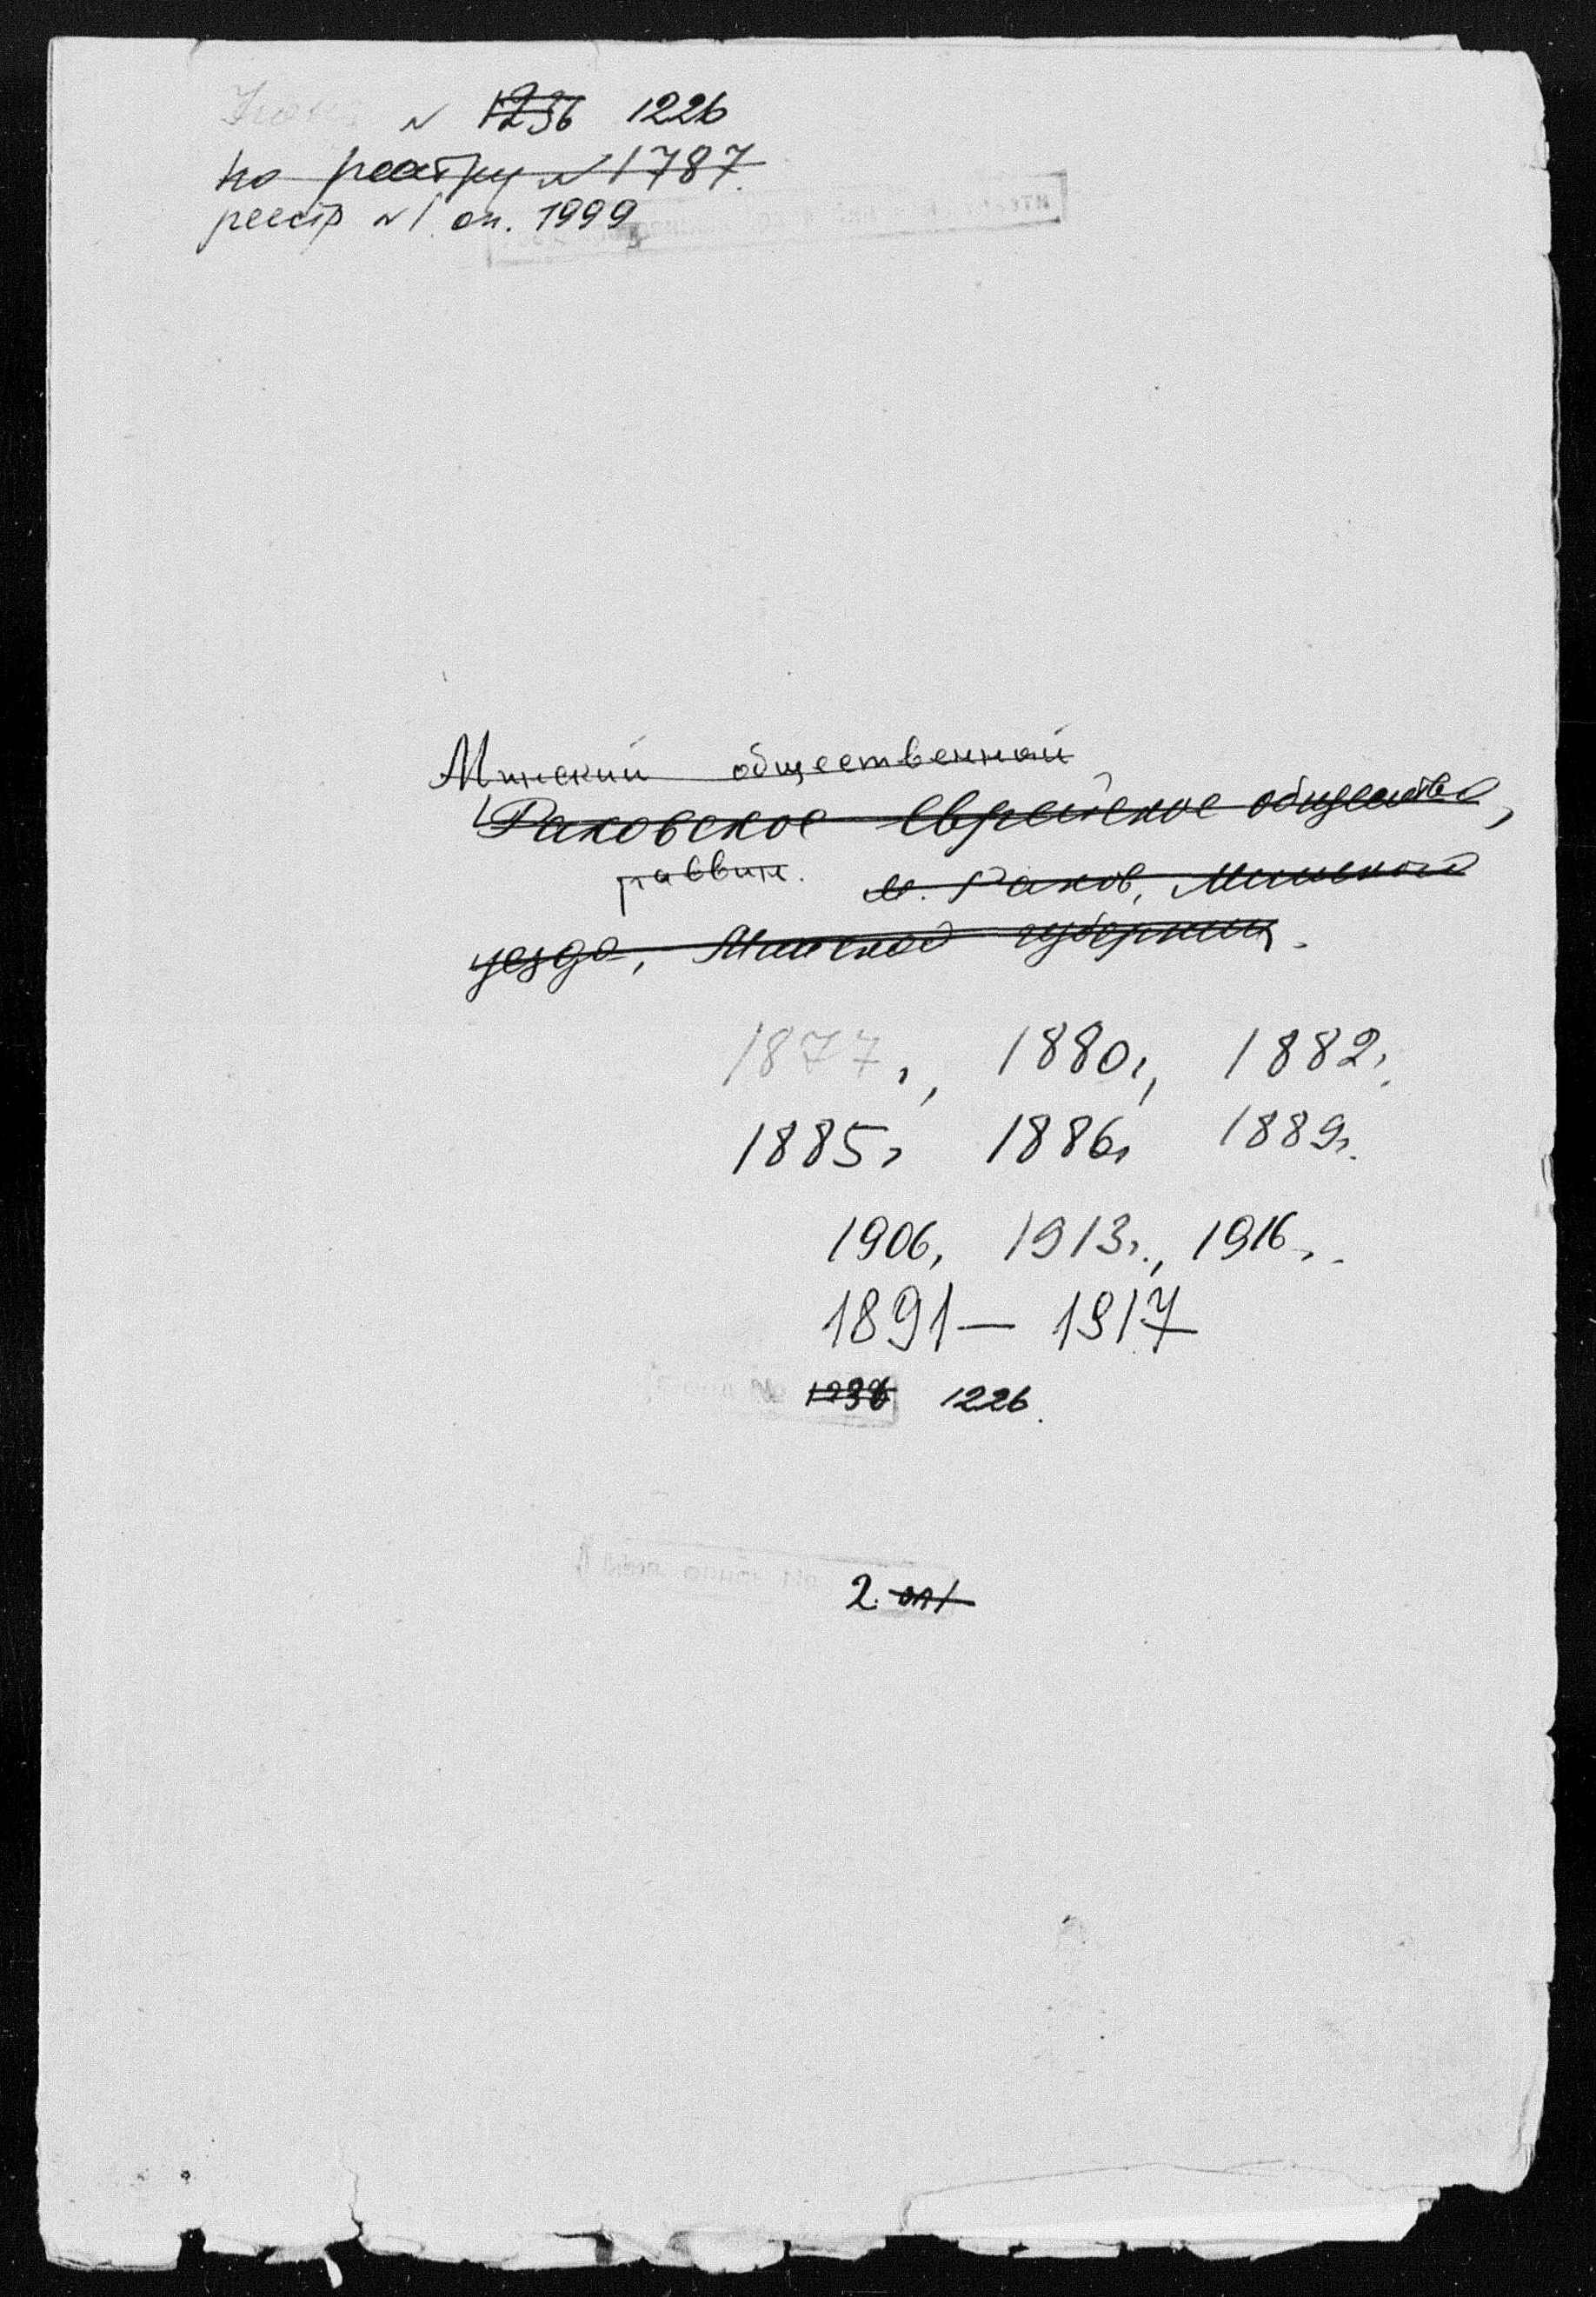 N 1236 1226
по реестру N 1787.
реестр N 1 оп. 1999
Минский общественный
Раковское еврейское общество,
раввин.
м. Раков, Минской
уезда, Минской губернии.
1877г., 1880г., 1882г.
1885г. 1886г. 1889г.
1906, 1913г., 1916г.
1891 — 1917
1236 1226.
2. оп 1